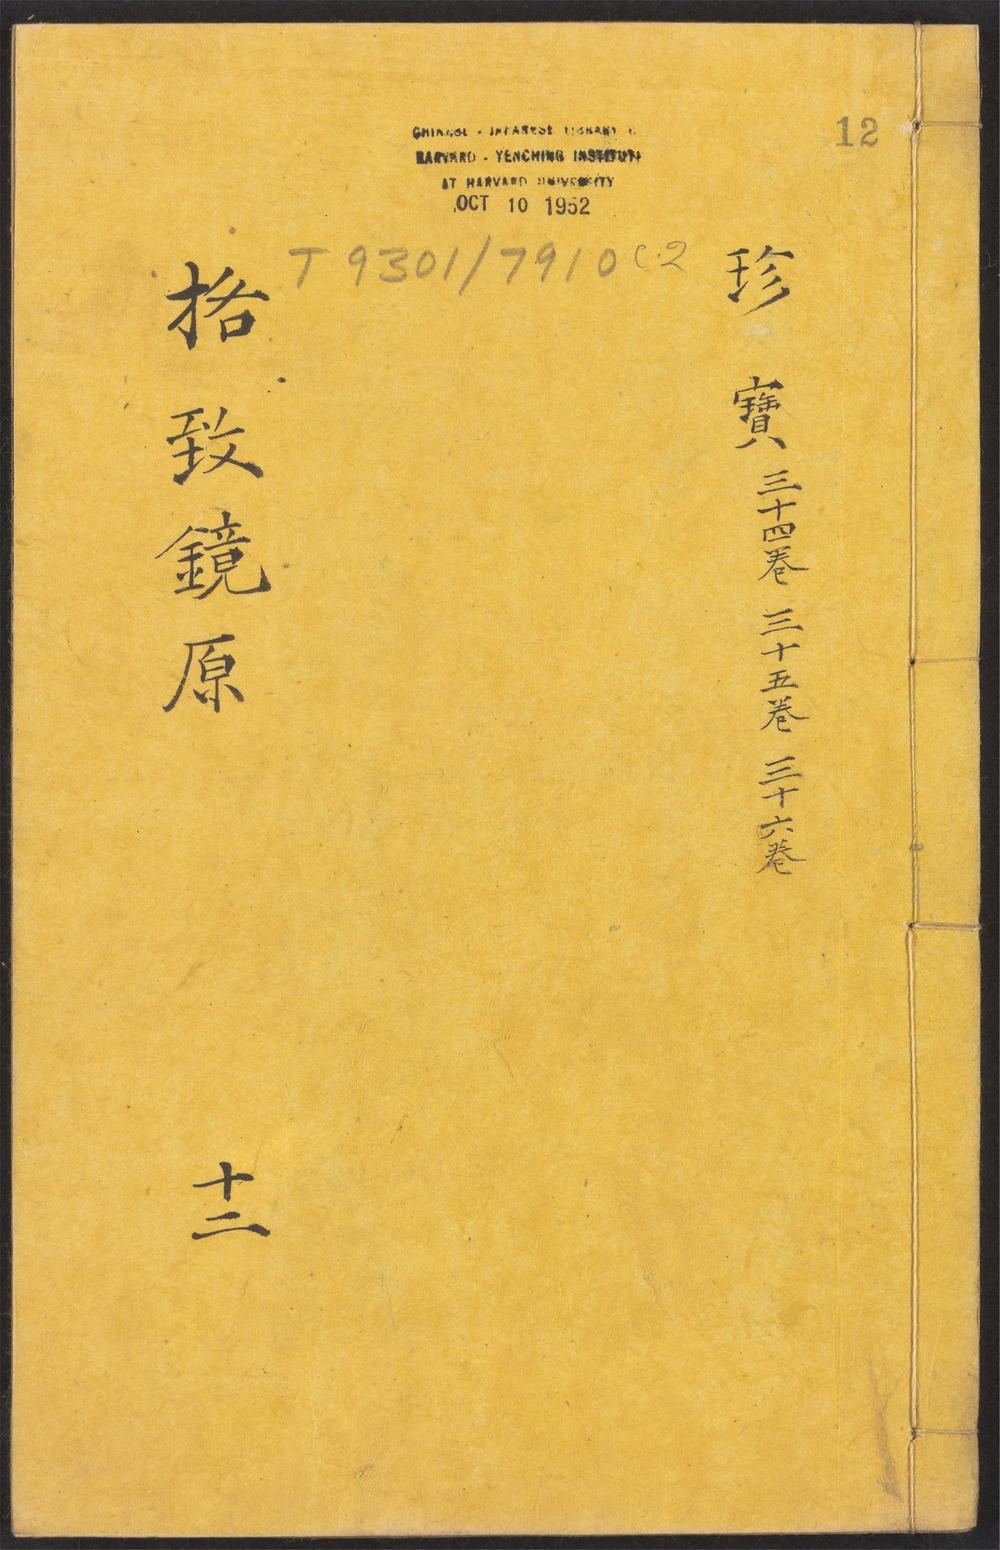 12
CHINESE - JAPANESE LIBRARY
HARVARD - YENCHING INSTITUTE
AT HARVARD UNIVERSITY
OCT 10 1952
T 9301/7910 C.2
珍寶 三十四卷 三十五卷 三十六卷
格致鏡原
十二